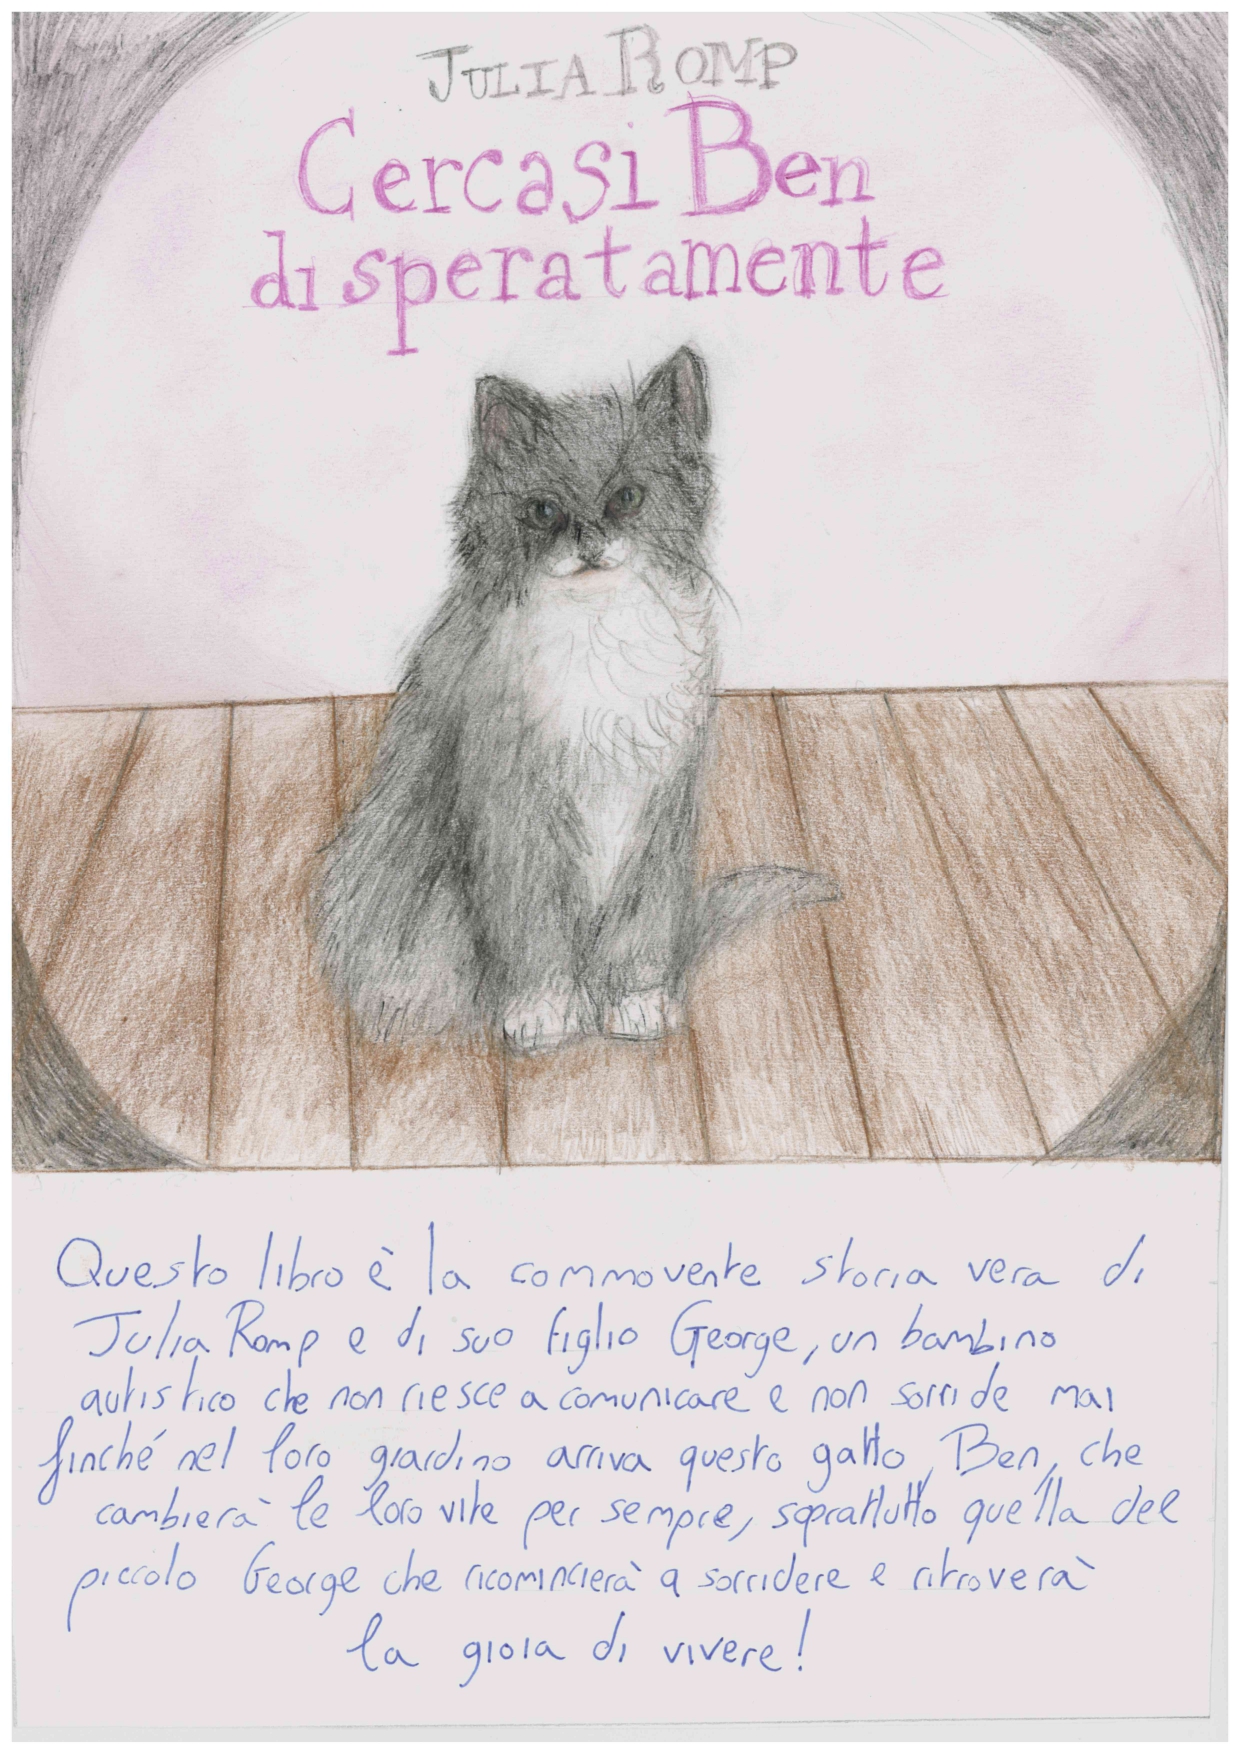 JULIA ROMP
Cercasi Ben
disperatamente
Questo libro è la commovente storia vera di
Julia Romp e di suo figlio George, un bambino
autistico che non riesce a comunicare e non sorride mai
finché nel loro giardino arriva questo gatto, Ben, che
cambierà le loro vite per sempre, soprattutto quella del
piccolo George che ricomincierà a sorridere e ritroverà
la gioia di vivere!